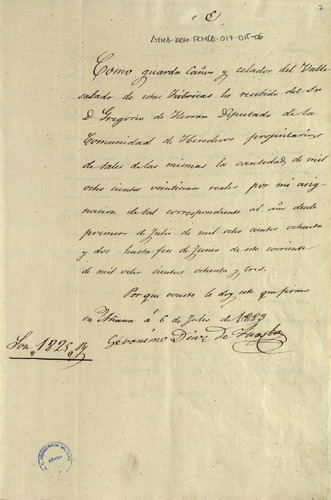 6
7
ATHA-DAH-FCHEA-017-015-06
Como guarda Caños y celador del Valle
salado de estas Fábricas he recibido del Sr
D. Gregorio de Herrán Diputado de la
Comunidad de Herederos propietarios
de sales de las mismas la cantidad, de mil
ocho cientos veinticinco reales por mi asig-
nacion de tal correspondiente al año desde
primero de Julio de mil ocho cientos ochenta
y dos hasta fin de Junio de este corriente
de mil ocho cientos ochenta y tres.
Por que conste le doy este que firmo
en Añana á 6 de Julio de 1883
Son 1825 rs
Geronimo Diez de